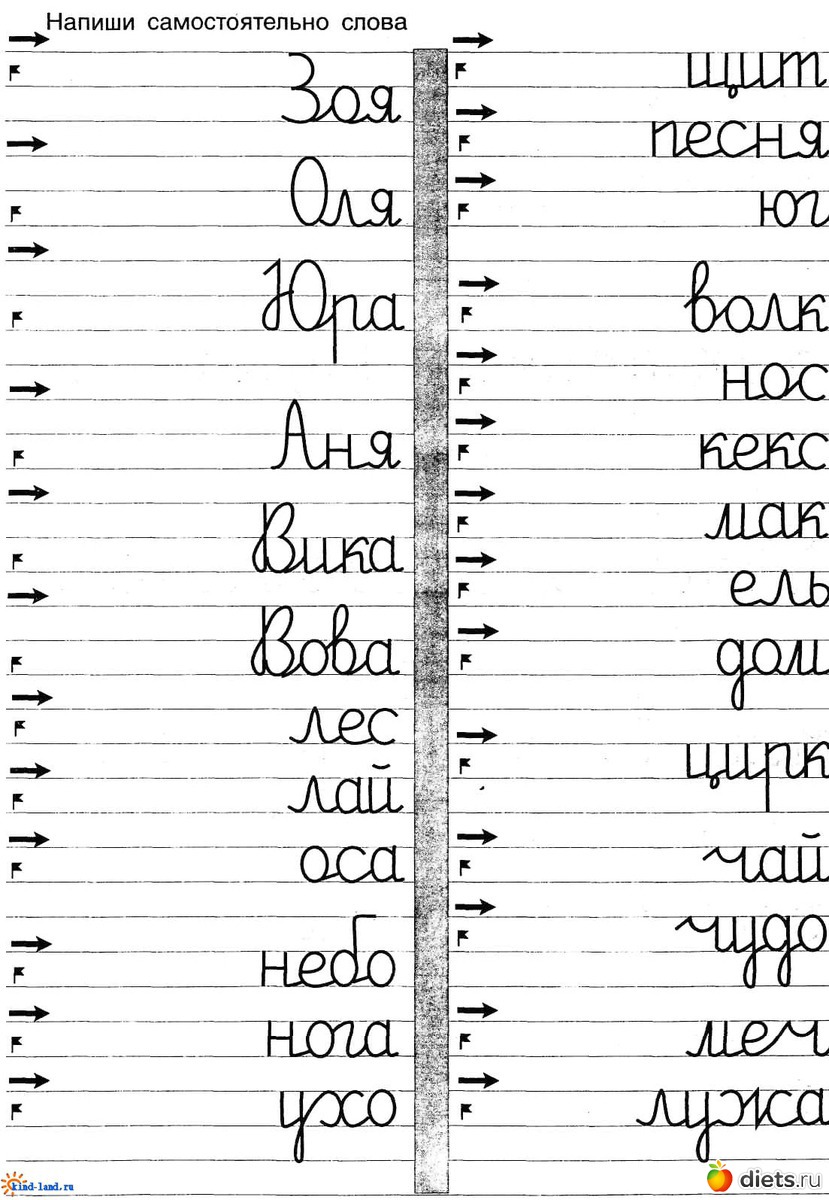 Напиши самостоятельно слова
Зоя
Оля
Юра
Аня
Вика
Вова
лес
лай
оса
небо
нога
ухо
щит
песня
юг
волк
нос
кекс
мак
ель
дом
цирк
чай
чудо
меч
лужа
kind-land.ru
diets.ru